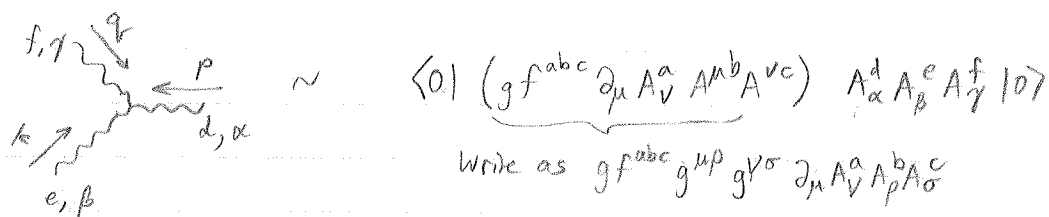 f, γ q p
~ ⟨0| (g f^{abc} ∂_μ A^a_ν A^{μb} A^{νc}) A^d_α A^e_β A^f_γ |0⟩
k d, α
Write as g f^{abc} g^{μρ} g^{νσ} ∂_μ A^a_ν A^b_ρ A^c_σ
e, β